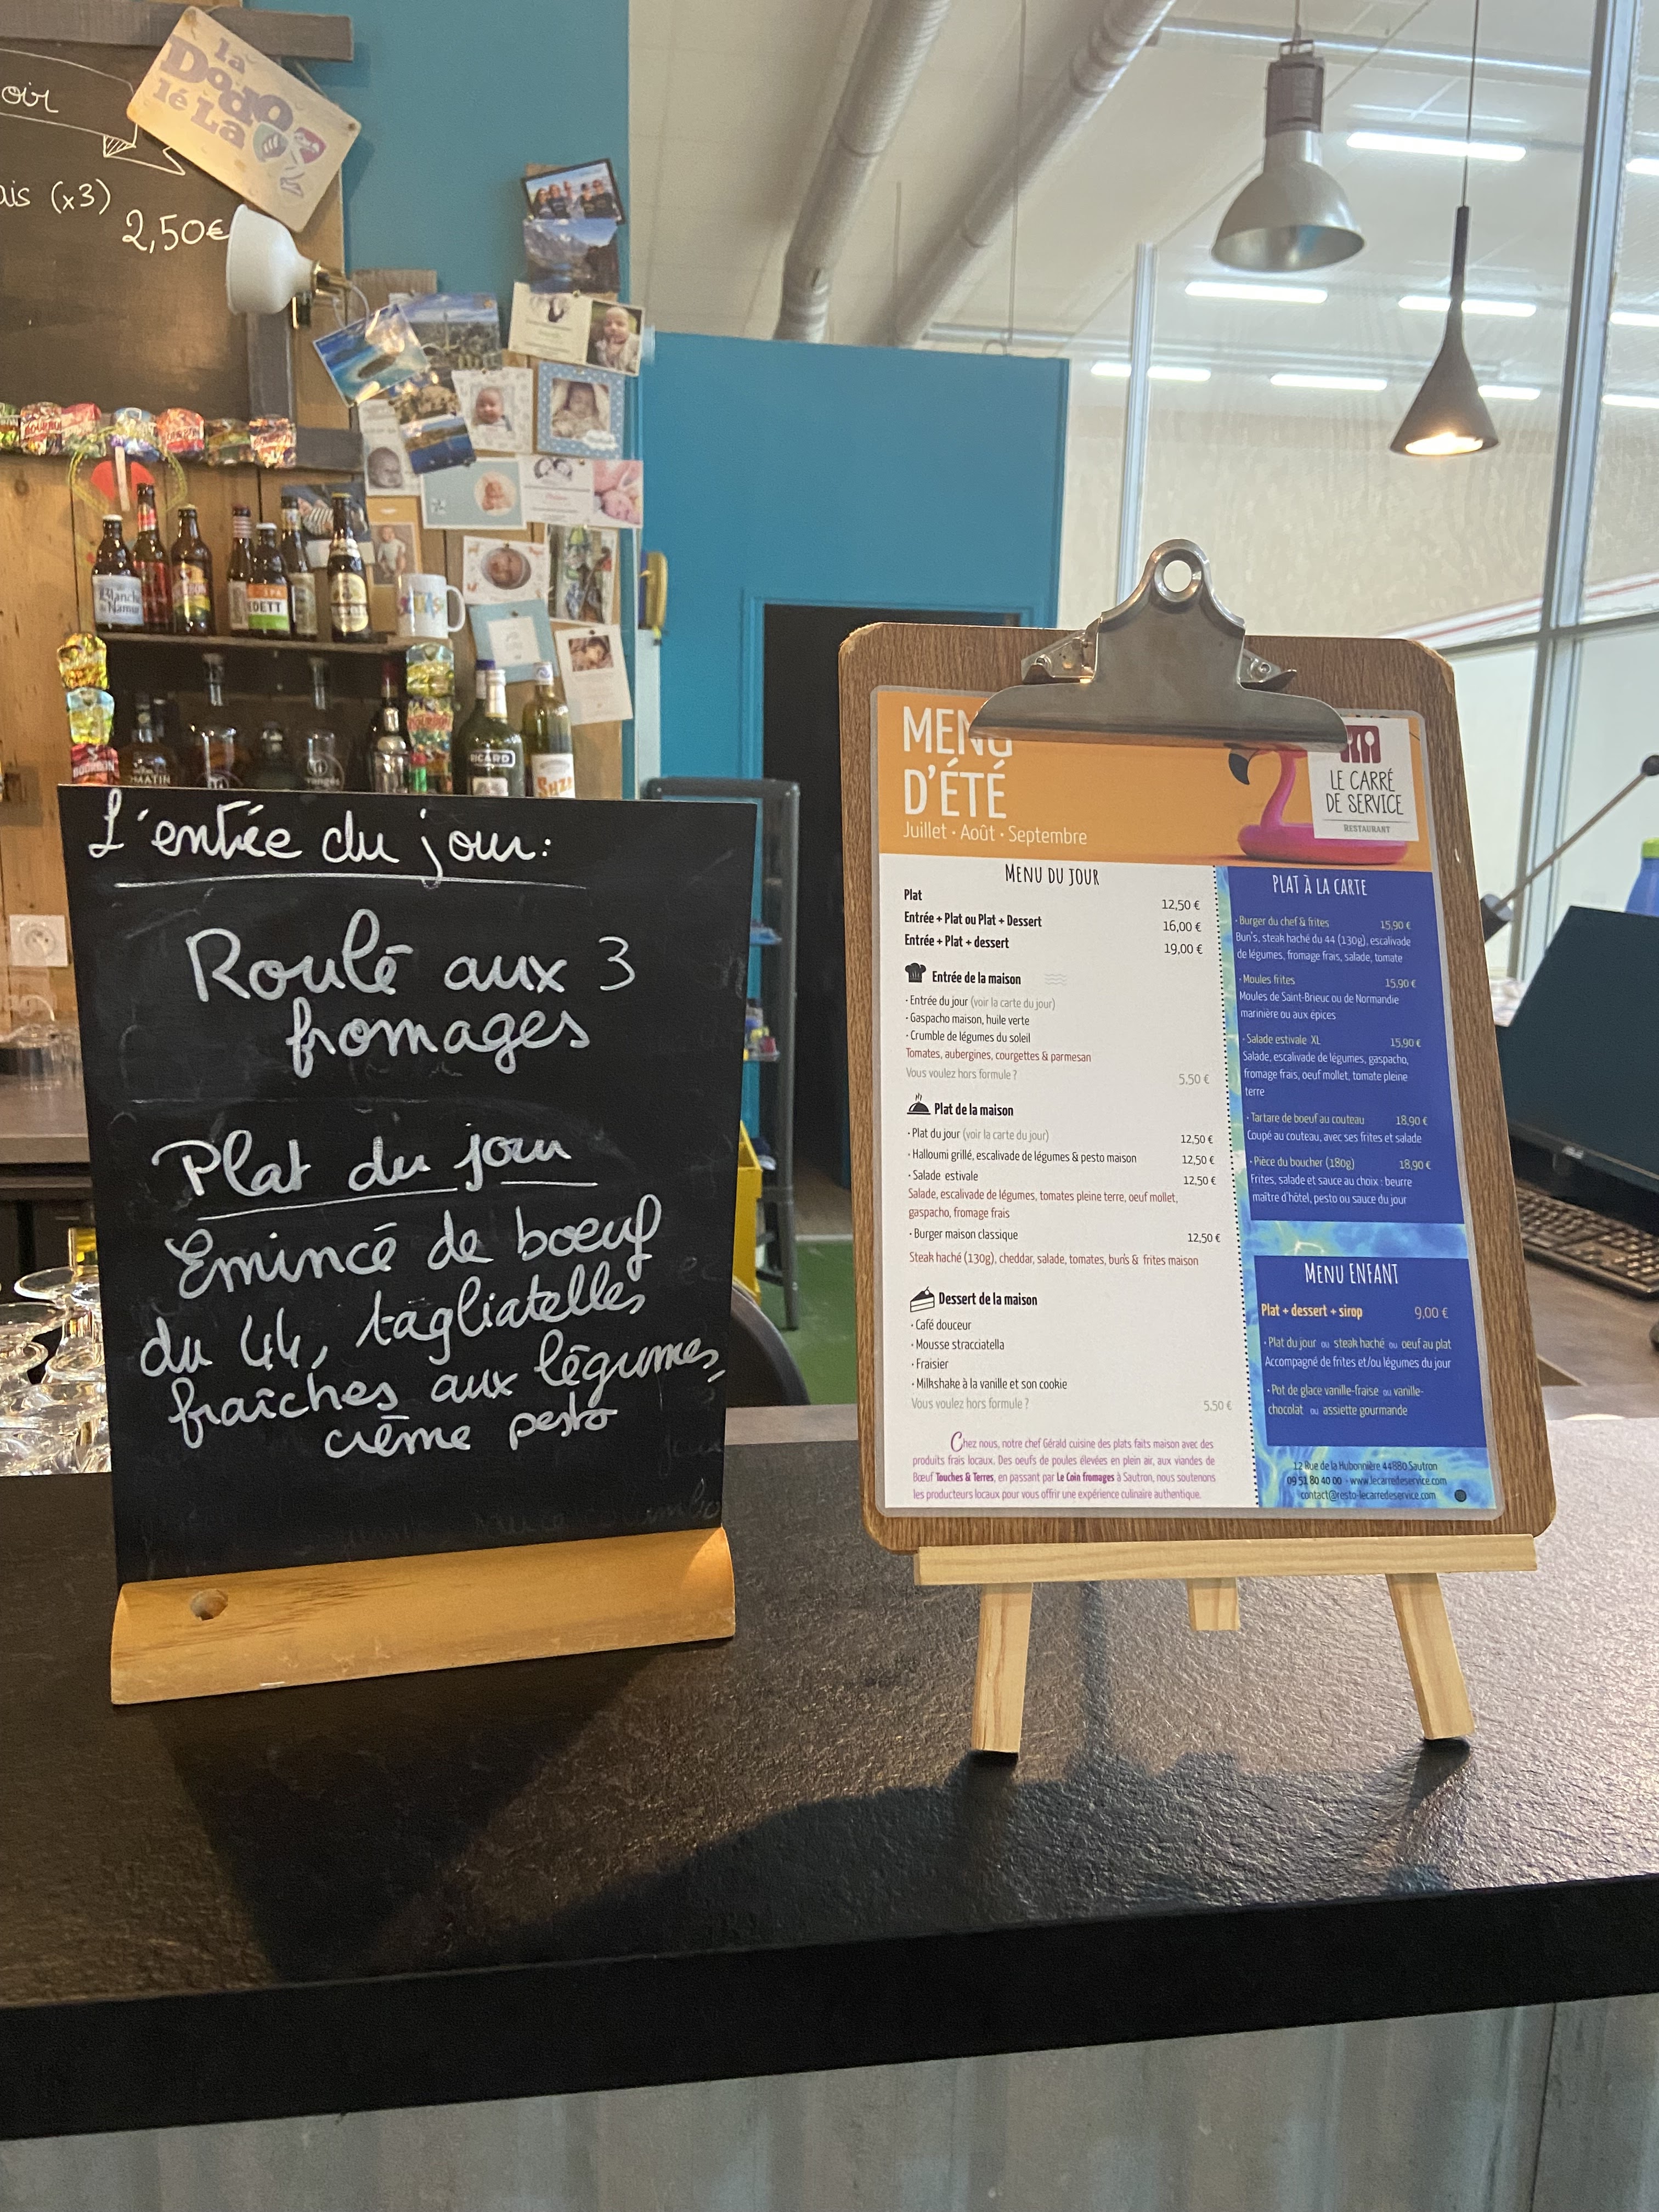 la
Dodo
lé La
oir
ais (x3)
2,50€
BOURBON
Blanche
de Namur
BOURBON
IPA
VEDETT
RICARD
MATIN
SUZE
BOURBON
L'entrée du jour:
Roulé aux 3
fromages
Plat du jour
Emincé de boeuf
du 44, tagliatelles
fraîches aux légumes,
crème pesto
MENU
D'ÉTÉ
Juillet · Août · Septembre
LE CARRÉ
DE SERVICE
RESTAURANT
MENU DU JOUR
Plat 12,50 €
Entrée + Plat ou Plat + Dessert 16,00 €
Entrée + Plat + dessert 19,00 €
Entrée de la maison
· Entrée du jour (voir la carte du jour)
· Gaspacho maison, huile verte
· Crumble de légumes du soleil
Tomates, aubergines, courgettes & parmesan
Vous voulez hors formule ? 5.50 €
Plat de la maison
· Plat du jour (voir la carte du jour) 12,50 €
· Halloumi grillé, escalivade de légumes & pesto maison 12,50 €
· Salade estivale 12,50 €
Salade, escalivade de légumes, tomates pleine terre, oeuf mollet,
gaspacho, fromage frais
· Burger maison classique 12,50 €
Steak haché (130g), cheddar, salade, tomates, bun's & frites maison
Dessert de la maison
· Café douceur
· Mousse stracciatella
· Fraisier
· Milkshake à la vanille et son cookie
Vous voulez hors formule ? 5.50 €
Chez nous, notre chef Gérald cuisine des plats faits maison avec des
produits frais locaux. Des oeufs de poules élevées en plein air, aux viandes de
Bœuf Touches & Terres, en passant par Le Coin fromages à Sautron, nous soutenons
les producteurs locaux pour vous offrir une expérience culinaire authentique.
PLAT À LA CARTE
· Burger du chef & frites 15,90 €
Bun's, steak haché du 44 (130g), escalivade
de légumes, fromage frais, salade, tomate
· Moules frites 15,90 €
Moules de Saint-Brieuc ou de Normandie
marinière ou aux épices
· Salade estivale XL 15,90 €
Salade, escalivade de légumes, gaspacho,
fromage frais, oeuf mollet, tomate pleine
terre
· Tartare de boeuf au couteau 18,90 €
Coupé au couteau, avec ses frites et salade
· Pièce du boucher (180g) 18,90 €
Frites, salade et sauce au choix : beurre
maître d'hôtel, pesto ou sauce du jour
MENU ENFANT
Plat + dessert + sirop 9,00 €
· Plat du jour ou steak haché ou oeuf au plat
Accompagné de frites et/ou légumes du jour
· Pot de glace vanille-fraise ou vanille-
chocolat ou assiette gourmande
12 Rue de la Hubonnière 44880 Sautron
09 51 80 40 00 - www.lecarredeservice.com
contact@resto-lecarredeservice.com